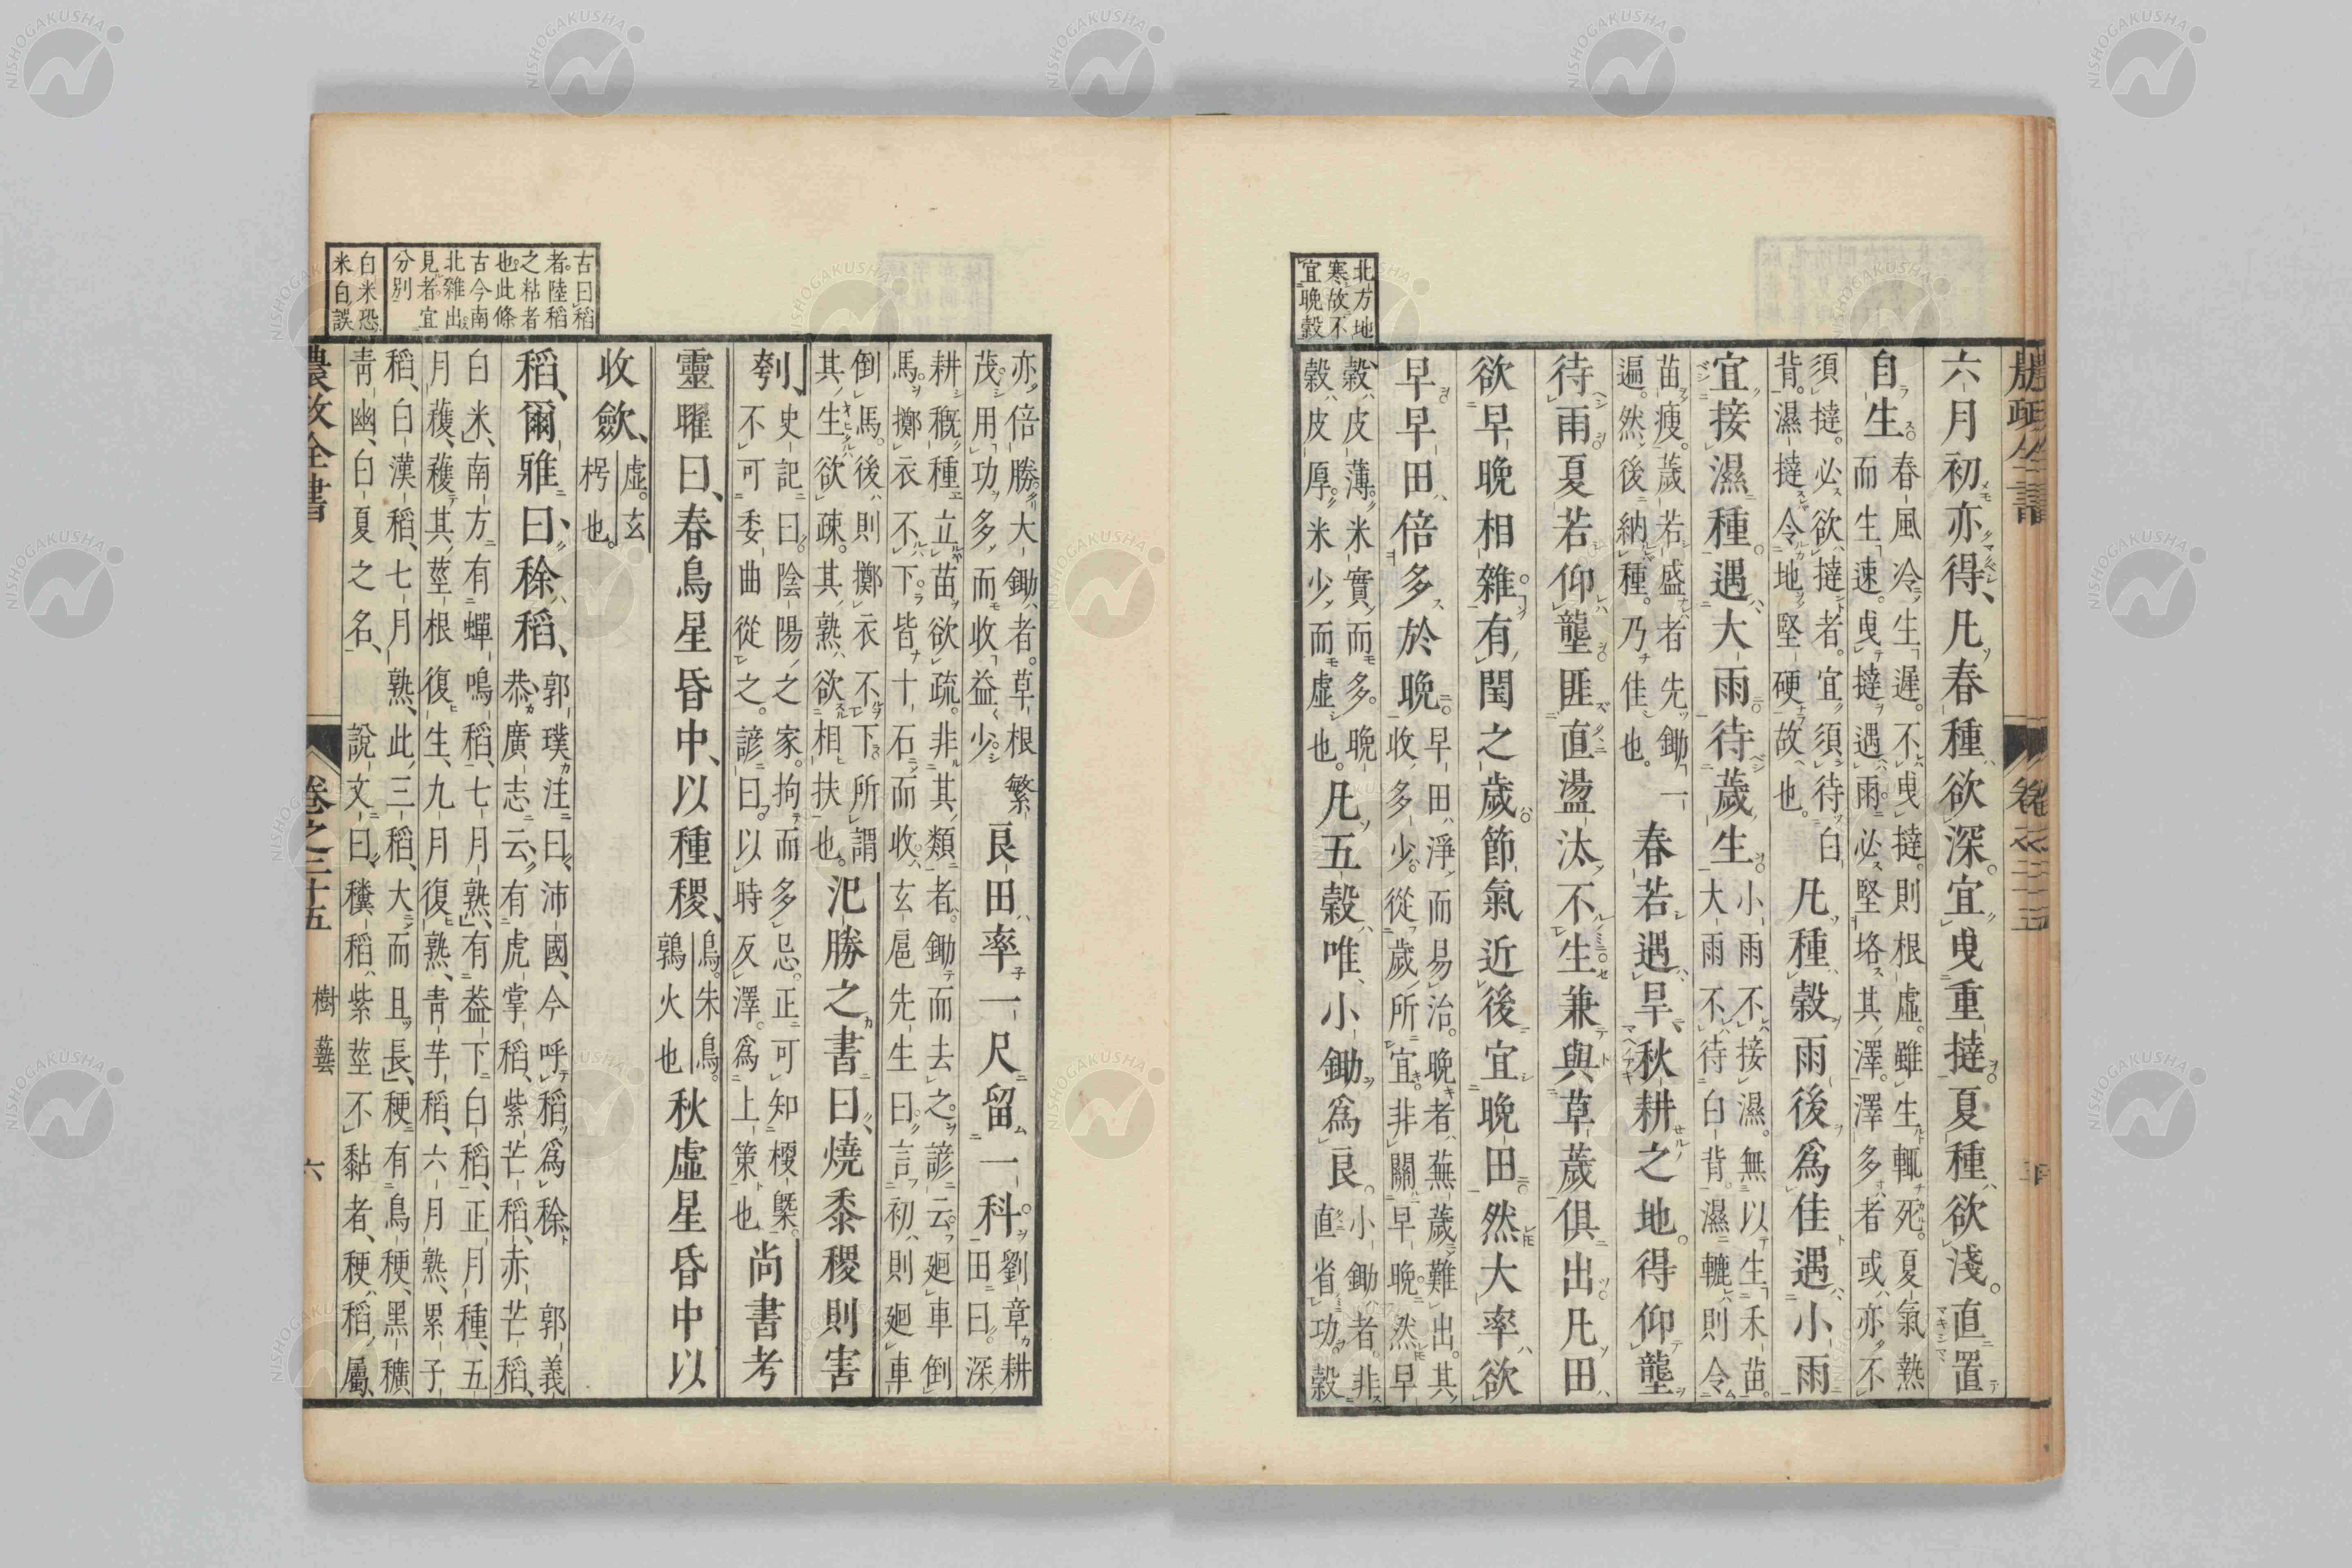 北方地
寒故不
宜晩穀
六月初亦得凡春種欲深宜曳重撻夏種欲淺直置
自生春風冷生遲不曳撻則根虛雖生輒死夏氣熱
而生速曳撻遇雨必堅垎其澤澤多者或亦不
須撻必欲撻者宜須待白
背濕撻令地堅硬故也凡種穀雨後爲佳遇小雨
宜接濕種遇大雨待薉生小雨不接濕無以生禾苗
大雨不待白背濕轆則令
苗瘦薉若盛者先鋤一
遍然後納種乃佳也春若遇旱秋耕之地得仰壟
待雨夏若仰壟匪直盪汰不生兼與草薉俱出凡田
欲早晩相雜有閏之歲節氣近後宜晩田然大率欲
早早田倍多於晩早田淨而易治晩者蕪薉難出其
收多少從歲所宜非關早晩然早
穀皮薄米實而多晩
穀皮厚米少而虛也凡五穀唯小鋤爲良小鋤者非
直省功穀
古曰稻
者陸稻
之粘者
也此條
古今南
北雜出
見者宜
分別
白米恐
米白誤
亦倍勝大鋤者草根繁
茂用功多而收益少良田率一尺留一科劉章耕
田曰深
耕穊種立苗欲疏非其類者鋤而去之諺云廻車倒
馬擲衣不下皆十石而收玄扈先生曰言初則廻車
倒馬後則擲衣不下所謂
其生欲疎其熟欲相扶也氾勝之書曰燒黍稷則害
瓠史記曰陰陽之家拘而多忌正可知梗槩
不可委曲從之諺曰以時及澤爲上策也尚書考
靈曜曰春鳥星昏中以種稷鳥朱鳥
鶉火也秋虛星昏中以
收斂虛玄
枵也
稻爾雅曰稌稻郭璞注曰沛國今呼稻爲稌郭義
恭廣志云有虎掌稻紫芒稻赤芒稻
白米南方有蟬鳴稻七月熟有葢下白稻正月種五
月穫穫其莖根復生九月復熟青芋稻六月熟累子
稻白漢稻七月熟此三稻大而且長秔有烏秔黑穬
青幽白夏之名說文曰穬稻紫莖不黏者秔稻屬
農政全書
卷之二十五
樹藝
六